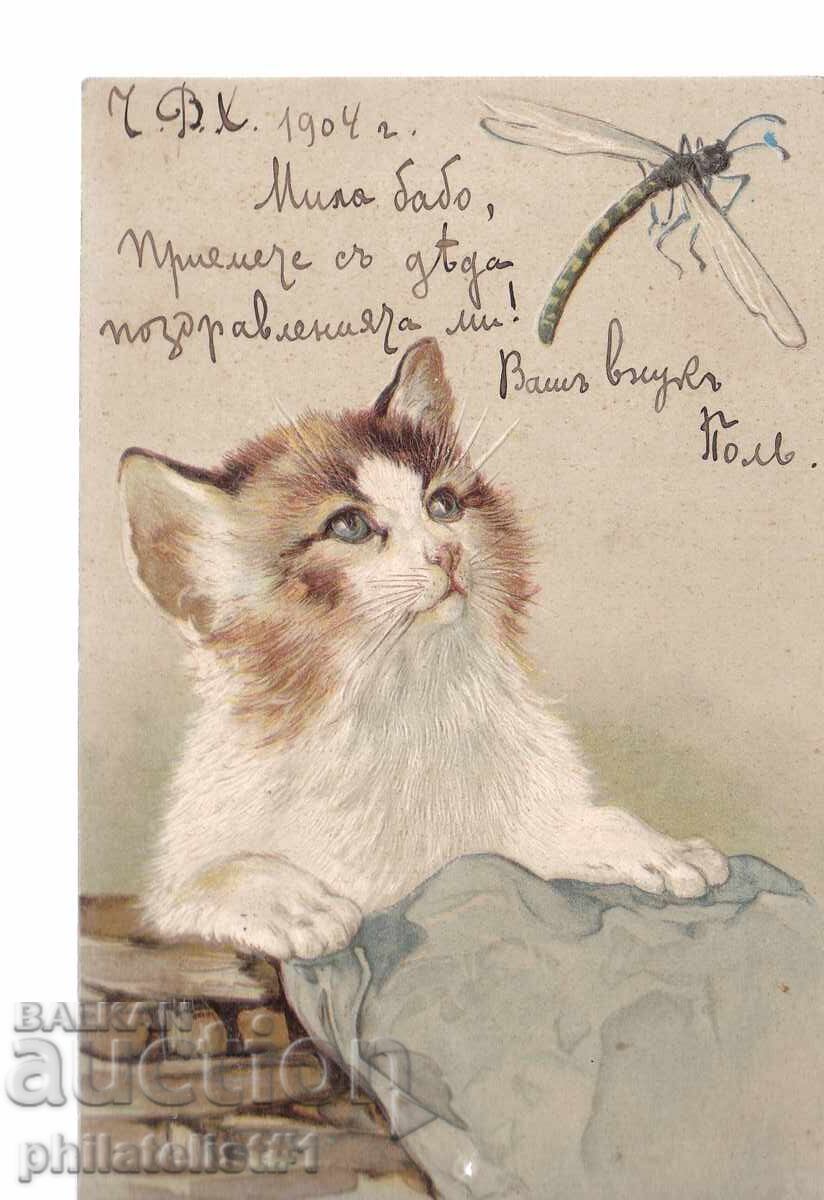 Ч. В. X. 1904 г.
Мила бабо,
Приемете съ дѣда
поздравленията ми!
Вашъ внукъ
Поль.
BALKAN
auction
philatelist#1